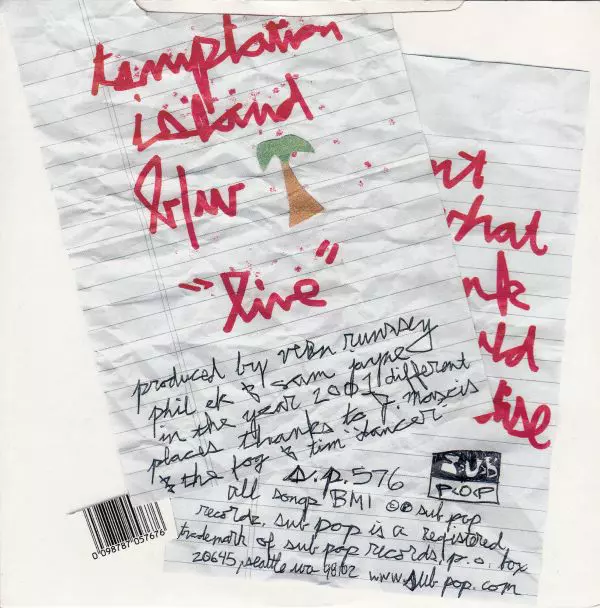 temptation
island
b/w
"live"
nt
what
nk
ld
else
produced by vern rumsey
phil ek & sam jayne
in the year 2001/different
places thanks to j. mascis
& the fog & tim
s.p. 576
SUB
POP
all songs BMI ©℗ sub pop
records. sub pop is a registered
trademark of sub pop records, p.o. box
20645, seattle wa 98102 www.subpop.com
0 098787 057676